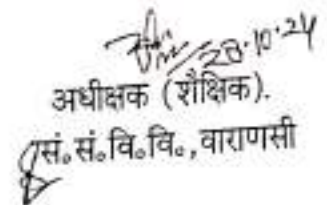 28.10.24
अधीक्षक (शैक्षिक).
सं॰ सं॰ वि॰ वि॰, वाराणसी